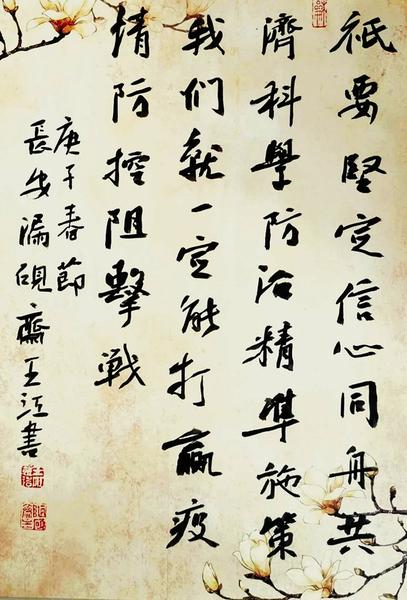 祇要堅定信心同舟共
濟科學防治精準施策
我们就一定能打贏疫
情防控阻擊戰
庚子春節
長安漏硯齋王江書